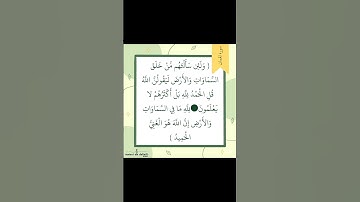 سورة لقمان
{ وَلَئِن سَأَلْتَهُم مَّنْ خَلَقَ
السَّمَاوَاتِ وَالْأَرْضَ لَيَقُولُنَّ اللَّهُ
قُلِ الْحَمْدُ لِلَّهِ بَلْ أَكْثَرُهُمْ لَا
يَعْلَمُونَ لِلَّهِ مَا فِي السَّمَاوَاتِ
وَالْأَرْضِ إِنَّ اللَّهَ هُوَ الْغَنِيُّ
الْحَمِيدُ }